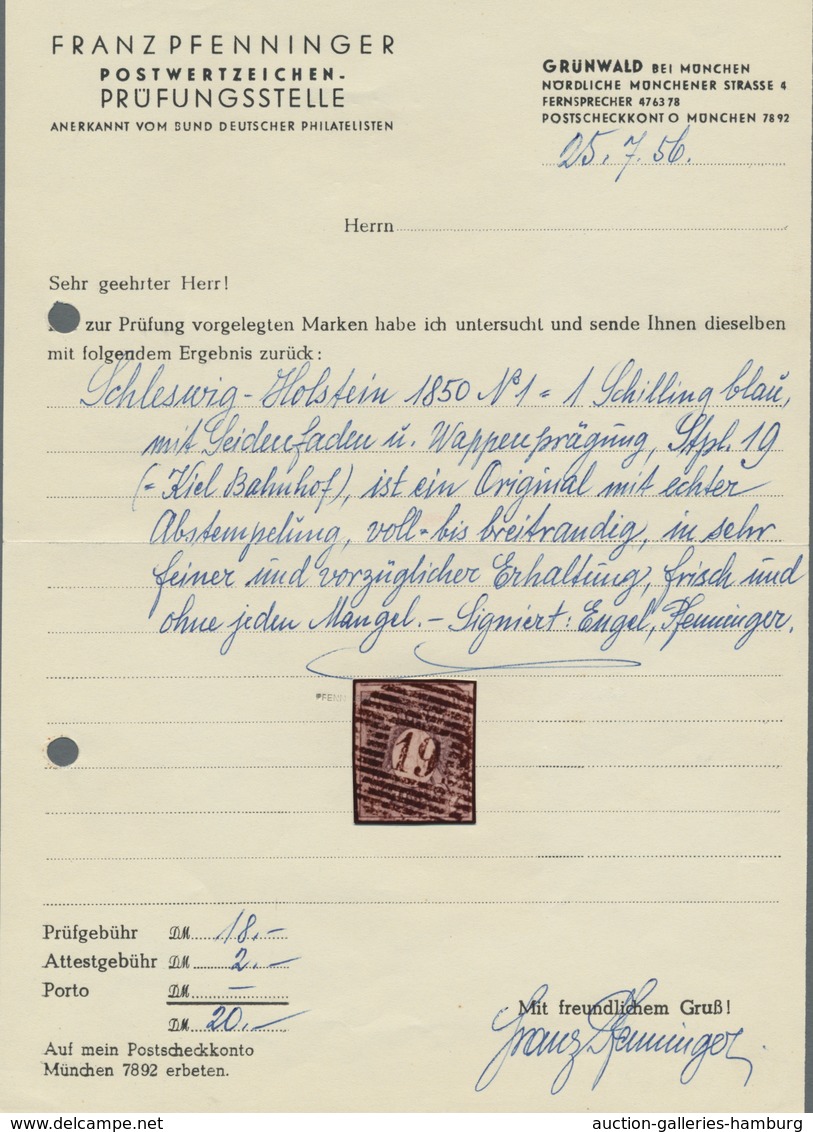 FRANZ PFENNINGER
POSTWERTZEICHEN-
PRÜFUNGSSTELLE
ANERKANNT VOM BUND DEUTSCHER PHILATELISTEN
GRÜNWALD BEI MÜNCHEN
NÖRDLICHE MÜNCHENER STRASSE 4
FERNSPRECHER 476378
POSTSCHECKKONTO MÜNCHEN 7892
25.7.56.
Herrn
Sehr geehrter Herr!
zur Prüfung vorgelegten Marken habe ich untersucht und sende Ihnen dieselben
mit folgendem Ergebnis zurück:
Schleswig-Holstein 1850 No 1 = 1 Schilling blau,
mit Seidenfaden u. Wappenprägung, Stpl. 19
(= Kiel Bahnhof), ist ein Original mit echter
Abstempelung, voll- bis breitrandig, in sehr
feiner und vorzüglicher Erhaltung, frisch und
ohne jeden Mangel. - Signiert: Engel, Pfenninger.
PFENN
19
Prüfgebühr DM 18.-
Attestgebühr DM 2.-
Porto DM -
DM 20.-
Auf mein Postscheckkonto
München 7892 erbeten.
Mit freundlichem Gruß!
Franz Pfenninger
auction-galleries-hamburg